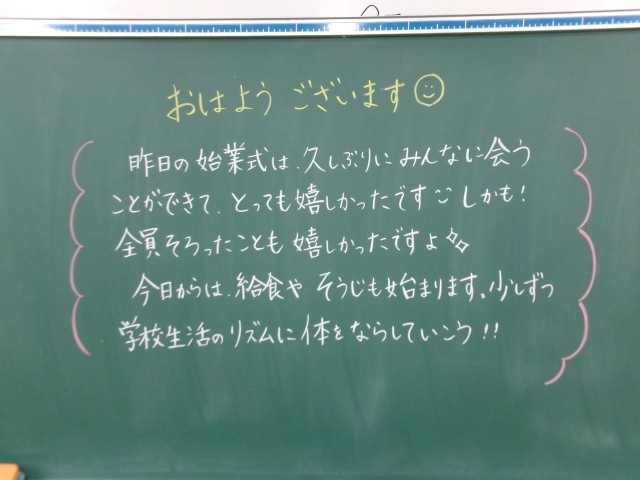 おはようございます
昨日の始業式は、久しぶりにみんなに会う
ことができて、とっても嬉しかったです しかも!
全員そろったことも嬉しかったですよ
今日からは、給食や そうじも始まります。少しずつ
学校生活のリズムに体をならしていこう!!